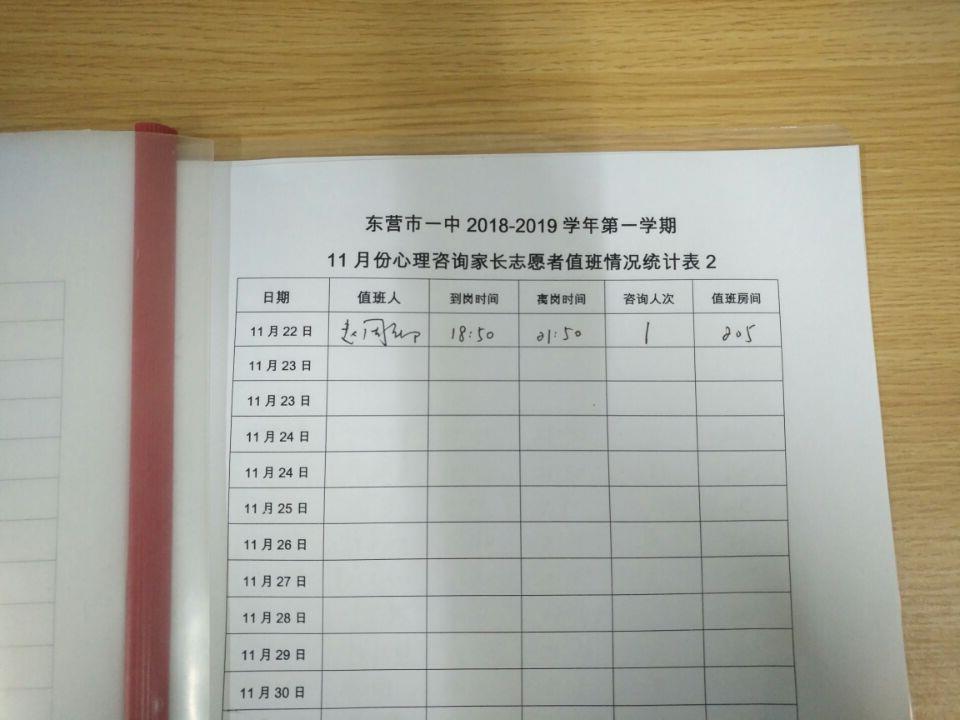 东营市一中 2018-2019 学年第一学期
11 月份心理咨询家长志愿者值班情况统计表 2
日期 值班人 到岗时间 离岗时间 咨询人次 值班房间
11 月 22 日 18:50 21:50 1 205
11 月 23 日
11 月 23 日
11 月 24 日
11 月 24 日
11 月 25 日
11 月 26 日
11 月 27 日
11 月 28 日
11 月 29 日
11 月 30 日